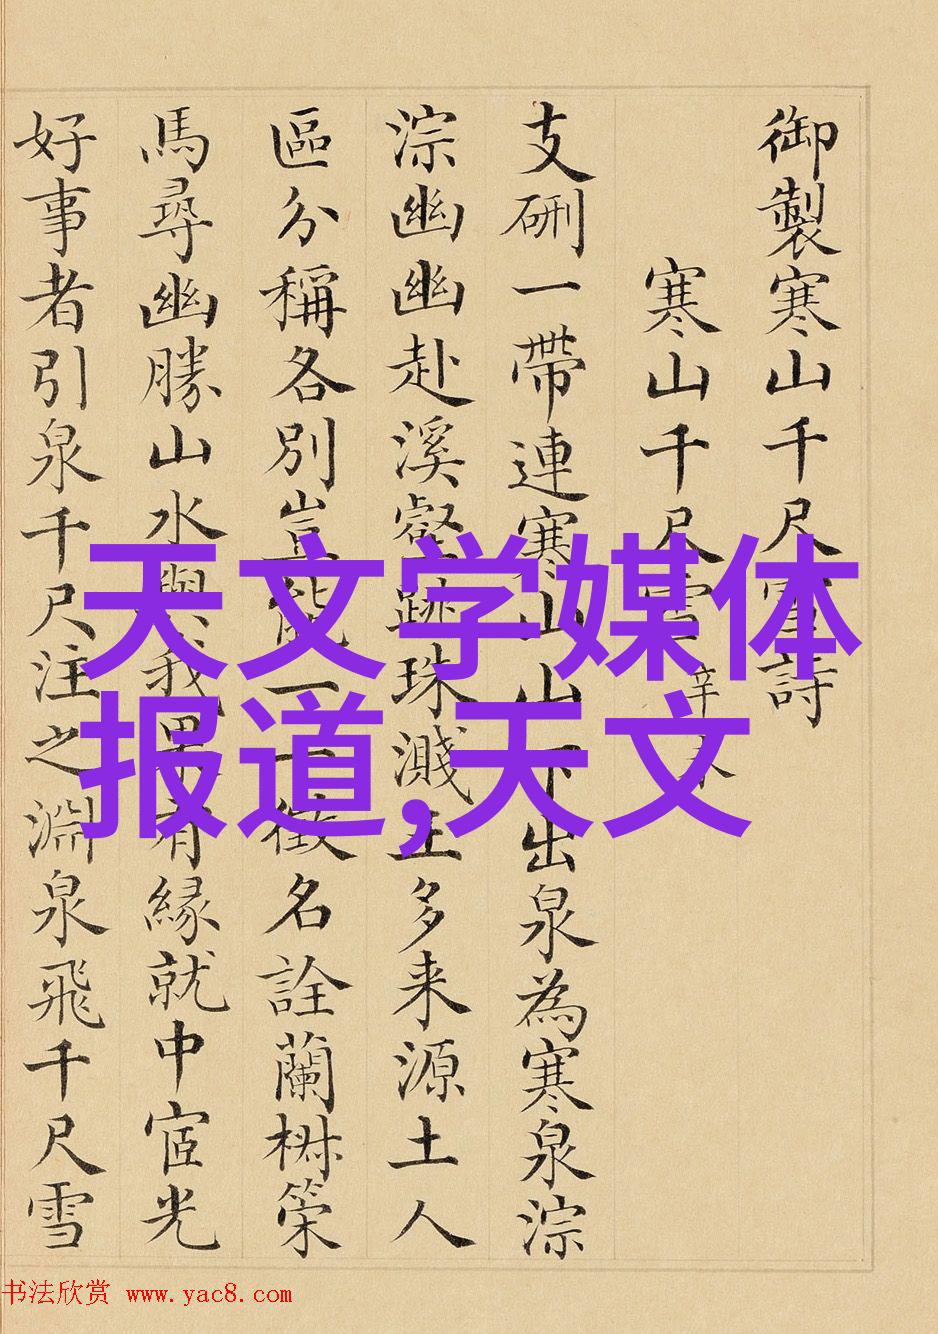 御製寒山千尺雪詩
寒山千尺雪 辛未
支硎一帶連寒山山下出泉為寒泉淙
淙幽幽赴溪壑跳珠濺玉多来源土人
區分稱各別豈能一一徵名詮蘭椒策
馬尋幽勝山水與我果有緣就中宦光
好事者引泉千尺注之淵泉飛千尺雪
天文学媒体
报道,天文
书法欣赏 www.yac8.com